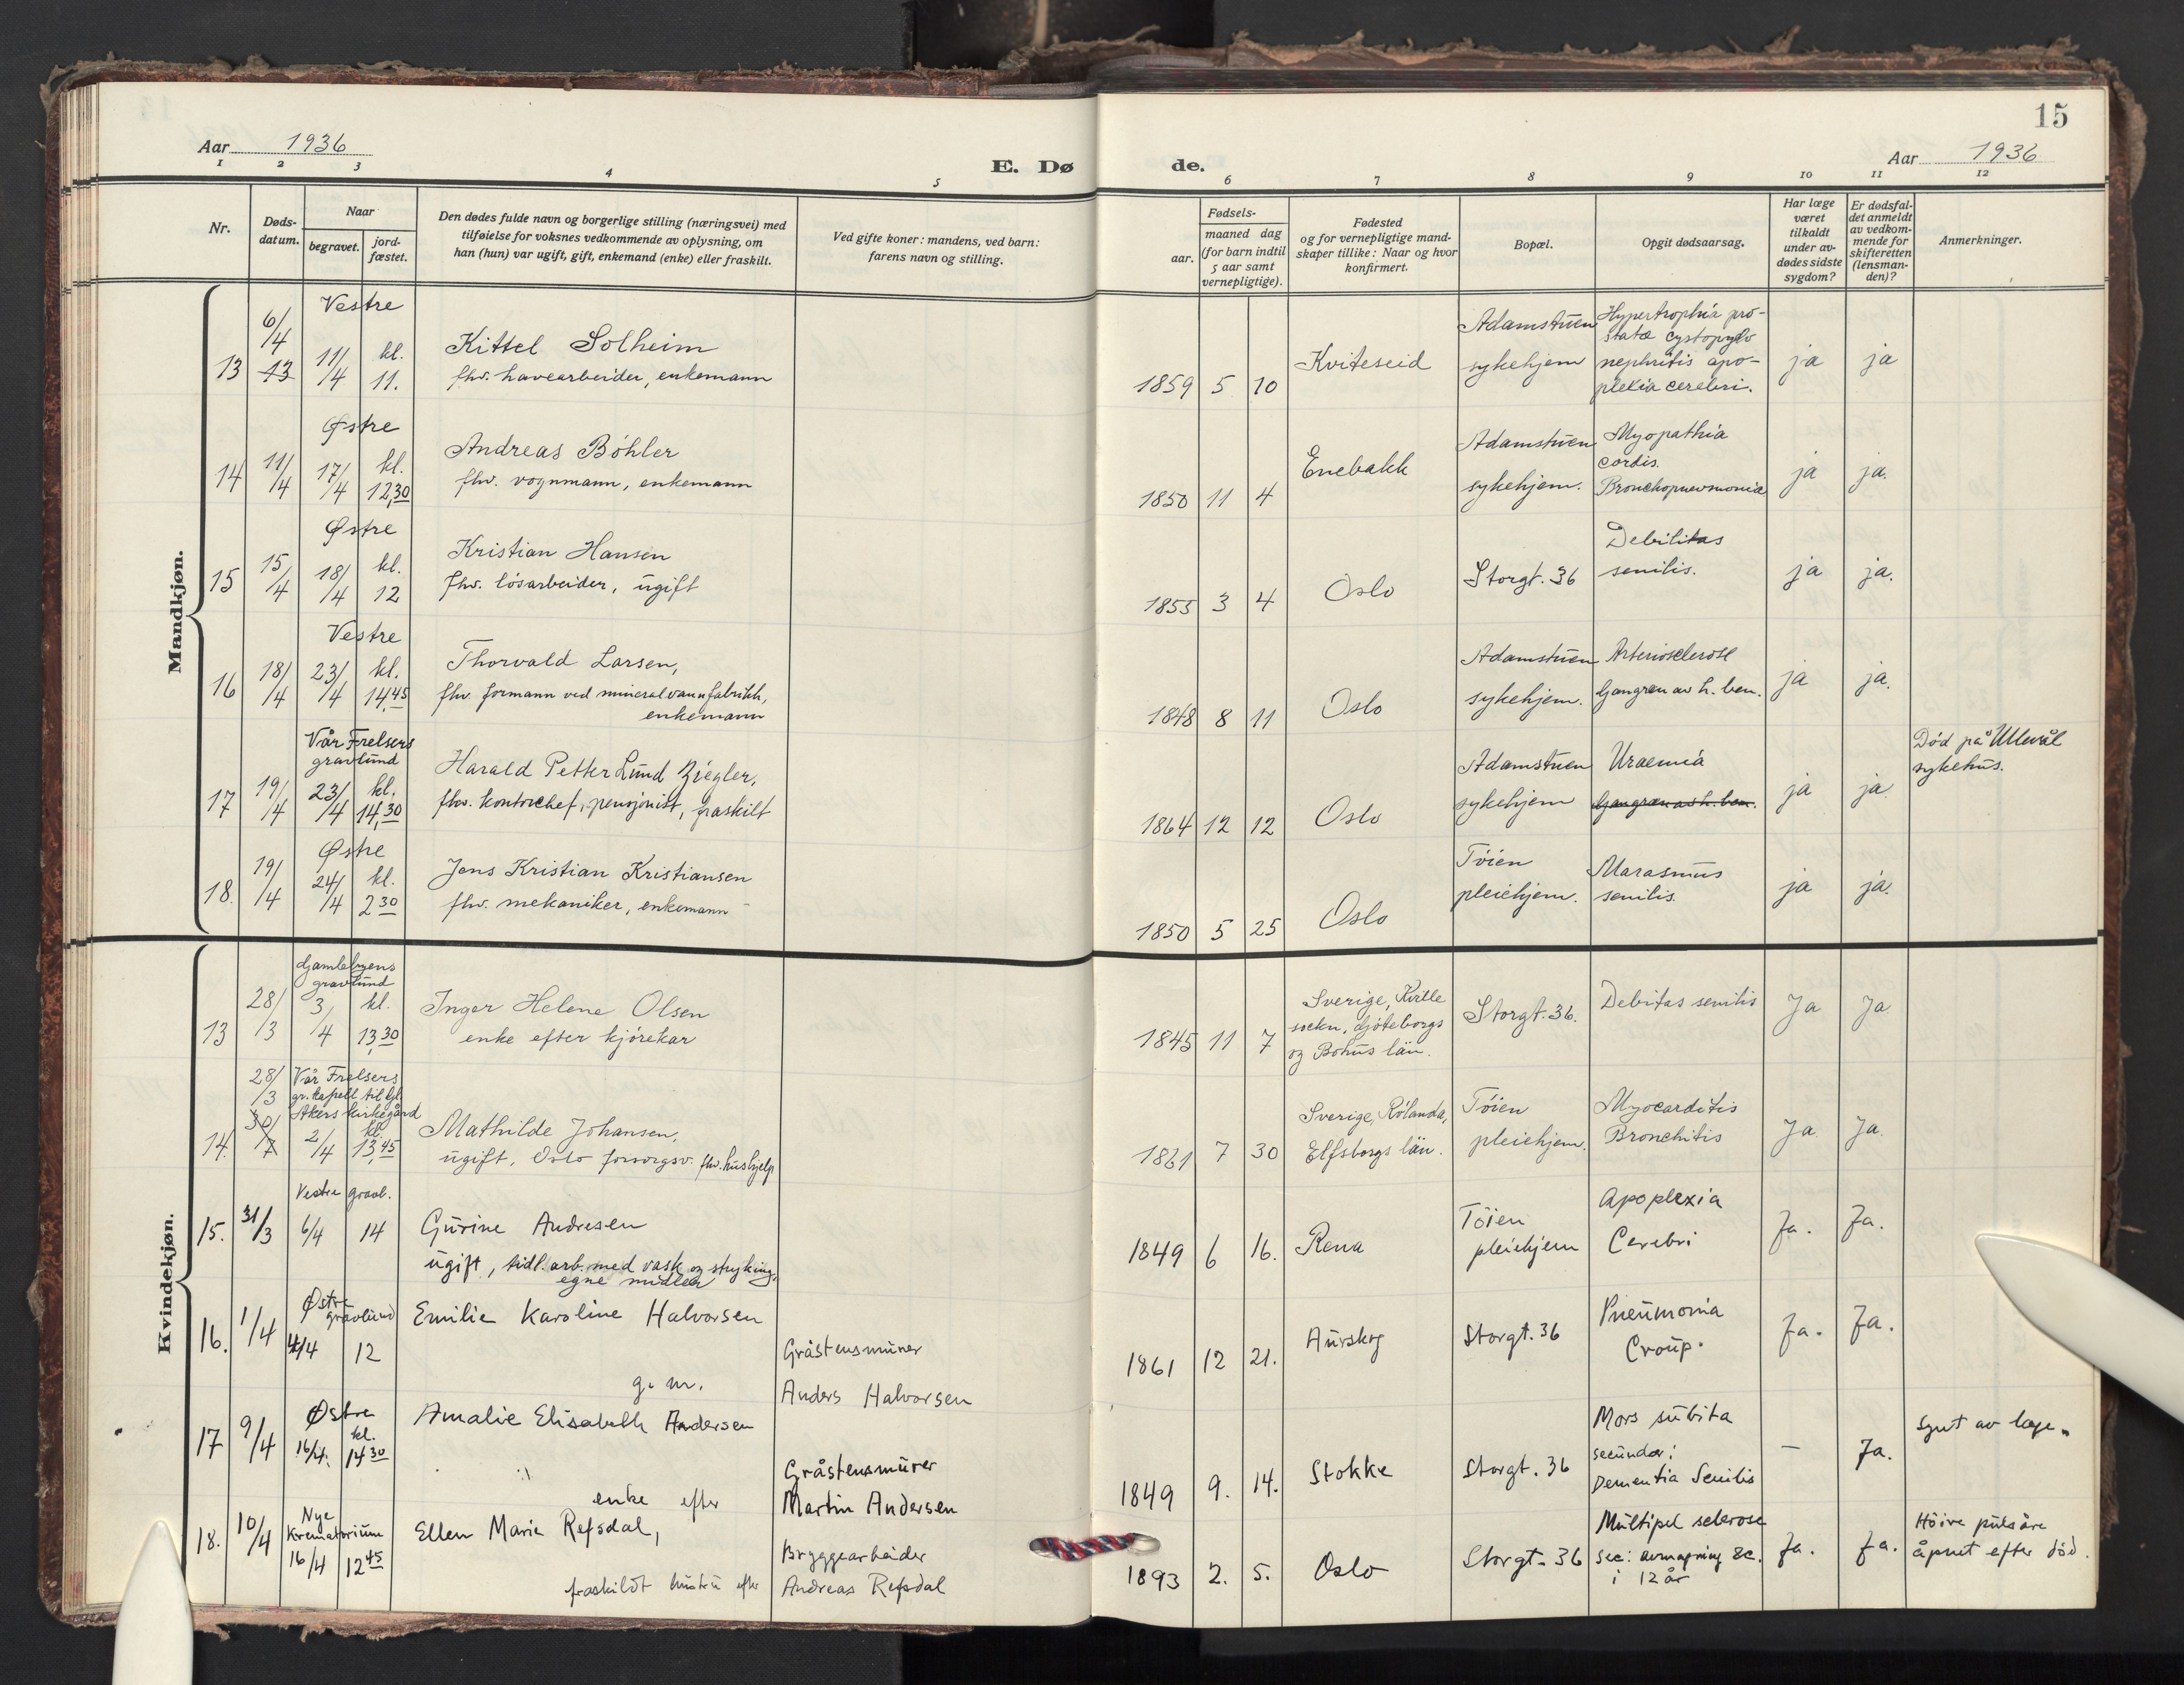 15
Aar 1936
E. Dø de.
Aar 1936
1 2 3 4 5 6 7 8 9 10 11 12
Nr.
Døds-
datum.
Naar
begravet.
jord-
fæstet.
Den dødes fulde navn og borgerlige stilling (næringsvei) med
tilføielse for voksnes vedkommende av oplysning, om
han (hun) var ugift, gift, enkemand (enke) eller fraskilt.
Ved gifte koner: mandens, ved barn:
farens navn og stilling.
Fødsels-
aar.
maaned dag
(for barn indtil
5 aar samt
vernepligtige).
Fødested
og for vernepligtige mand-
skaper tillike: Naar og hvor
konfirmert.
Bopæl.
Opgit dødsaarsag.
Har læge
været
tilkaldt
under av-
dødes sidste
sygdom?
Er dødsfal-
det anmeldt
av vedkom-
mende for
skifteretten
(lensman-
den)?
Anmerkninger.
Mandkjøn.
Vestre
13 6/4 13 11/4 kl. 11.
Kittel Solheim
fhv. havearbeider, enkemann
1859 5 10
Kviteseid
Adamstuen
sykehjem
Hypertrophia pro-
statæ cystopyelo
nephritis apo-
plexia cerebri.
ja ja
Østre
14 11/4 17/4 kl. 12,30
Andreas Böhler
fhv. vognmann, enkemann
1850 11 4
Enebakk
Adamstuen
sykehjem.
Myopathia
cordis.
Bronchopneumonia
ja ja.
Østre
15 15/4 18/4 kl. 12
Kristian Hansen
fhv. lösarbeider, ugift
1855 3 4
Oslo
Storgt. 36
Debilitas
senilis.
ja ja.
Vestre
16 18/4 23/4 kl. 14,45
Thorvald Larsen,
fhv. formann ved mineralvannfabrikk,
enkemann
1848 8 11
Oslo
Adamstuen
sykehjem.
Arteriosclerose
Gangren av h. ben.
ja ja.
Vår Frelsers
gravlund
17 19/4 23/4 kl. 14,30
Harald Petter Lund Ziegler,
fhv. kontorchef, pensjonist, fraskilt
1864 12 12
Oslo
Adamstuen
sykehjem
Uraemia
Gangren av h. ben.
ja ja.
Död på Ullevål
sykehus.
Østre
18. 19/4 24/4 kl. 2 30
Jens Kristian Kristiansen
fhv. mekaniker, enkemann
1850 5 25
Oslo
Töien
pleiehjem.
Marasmus
senilis.
ja ja.
Kvindekjøn.
Gamlebyens
gravlund
13 28/3 3/4 kl. 13,30
Inger Helene Olsen
enke efter kjörekar
1845 11 7
Sverige, Kville
sockn, Göteborgs
og Bohus län.
Storgt. 36.
Debitas senilis
Ja Ja
Vår Frelsers
gr. kapell til
Akers kirkegård
14. 28/3 30/7 2/4 kl. 13,45
Mathilde Johansen,
ugift, Oslo forsorgsv. fhv. hushjelp
1861 7 30
Sverige, Rölanda,
Elfsborgs län.
Töien
pleiehjem.
Myocarditis
Bronchitis
Ja. Ja.
Vestre gravl.
15. 31/3 6/4 14
Gurine Andresen
ugift, tidl. arb. med vask og stryking,
egne midler
1849 6 16.
Rena
Töien
pleiehjem
Apoplexia
Cerebri
Ja. Ja.
Østre
gravlund
16. 1/4 4/4 12
Emilie Karoline Halvorsen
g. m.
Gråstensmurer
Anders Halvorsen
1861 12 21.
Aurskog
Storgt. 36
Pneumonia
Croup.
Ja. Ja.
Østre
17 9/4 16/4. kl. 14 30
Amalie Elisabeth Andersen
enke efter
Gråstensmurer
Martin Andersen
1849 9. 14.
Stokke
Storgt. 36
Mors subita
secunda:
Dementia Senilis
— Ja.
Synt av læge.
Nye
Krematorium
18. 10/4 16/4 12 45
Ellen Marie Refsdal,
fraskildt hustru efter
Bryggearbeider
Andreas Refsdal
1893 2. 5.
Oslo
Storgt. 36
Multipel sclerose
sec: avmagring &c.
i 12 år
Ja. Ja.
Höire pulsåre
åpnet efter död.